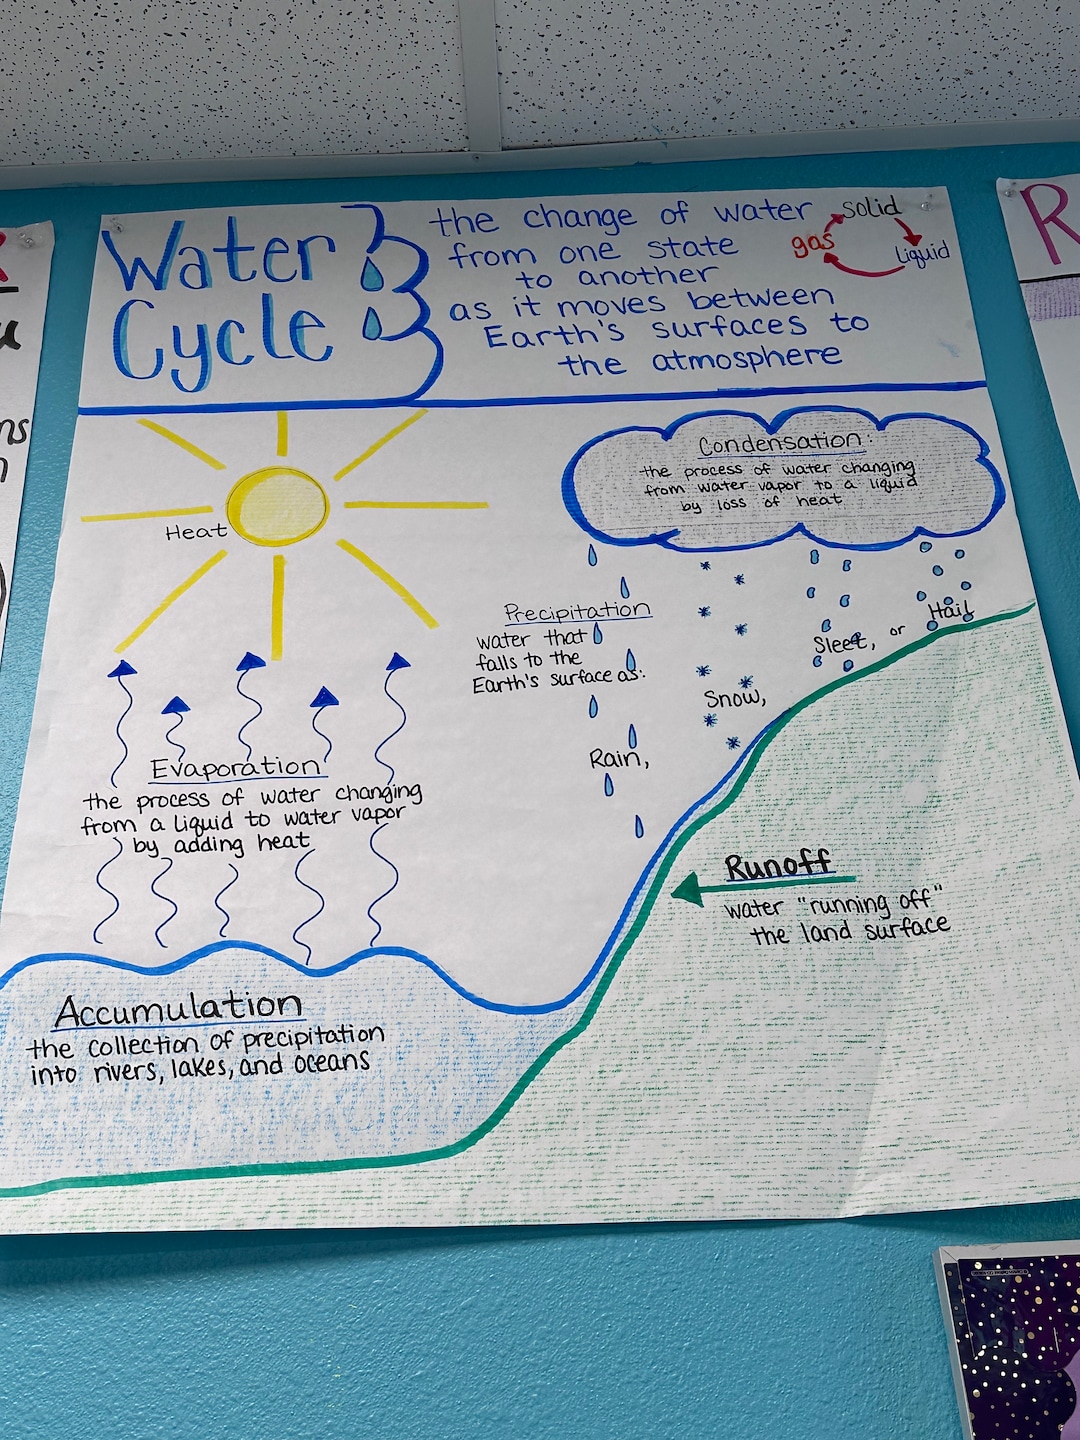 Water
Cycle
the change of water
from one state
to another
as it moves between
Earth's surfaces to
the atmosphere
solid
gas
Liquid
Heat
Condensation:
the process of water changing
from water vapor to a liquid
by loss of heat
Precipitation
water that
falls to the
Earth's surface as:
Rain,
Snow,
Sleet, or
Hail
Evaporation
the process of water changing
from a liquid to water vapor
by adding heat
Runoff
water "running off"
the land surface
Accumulation
the collection of precipitation
into rivers, lakes, and oceans
R